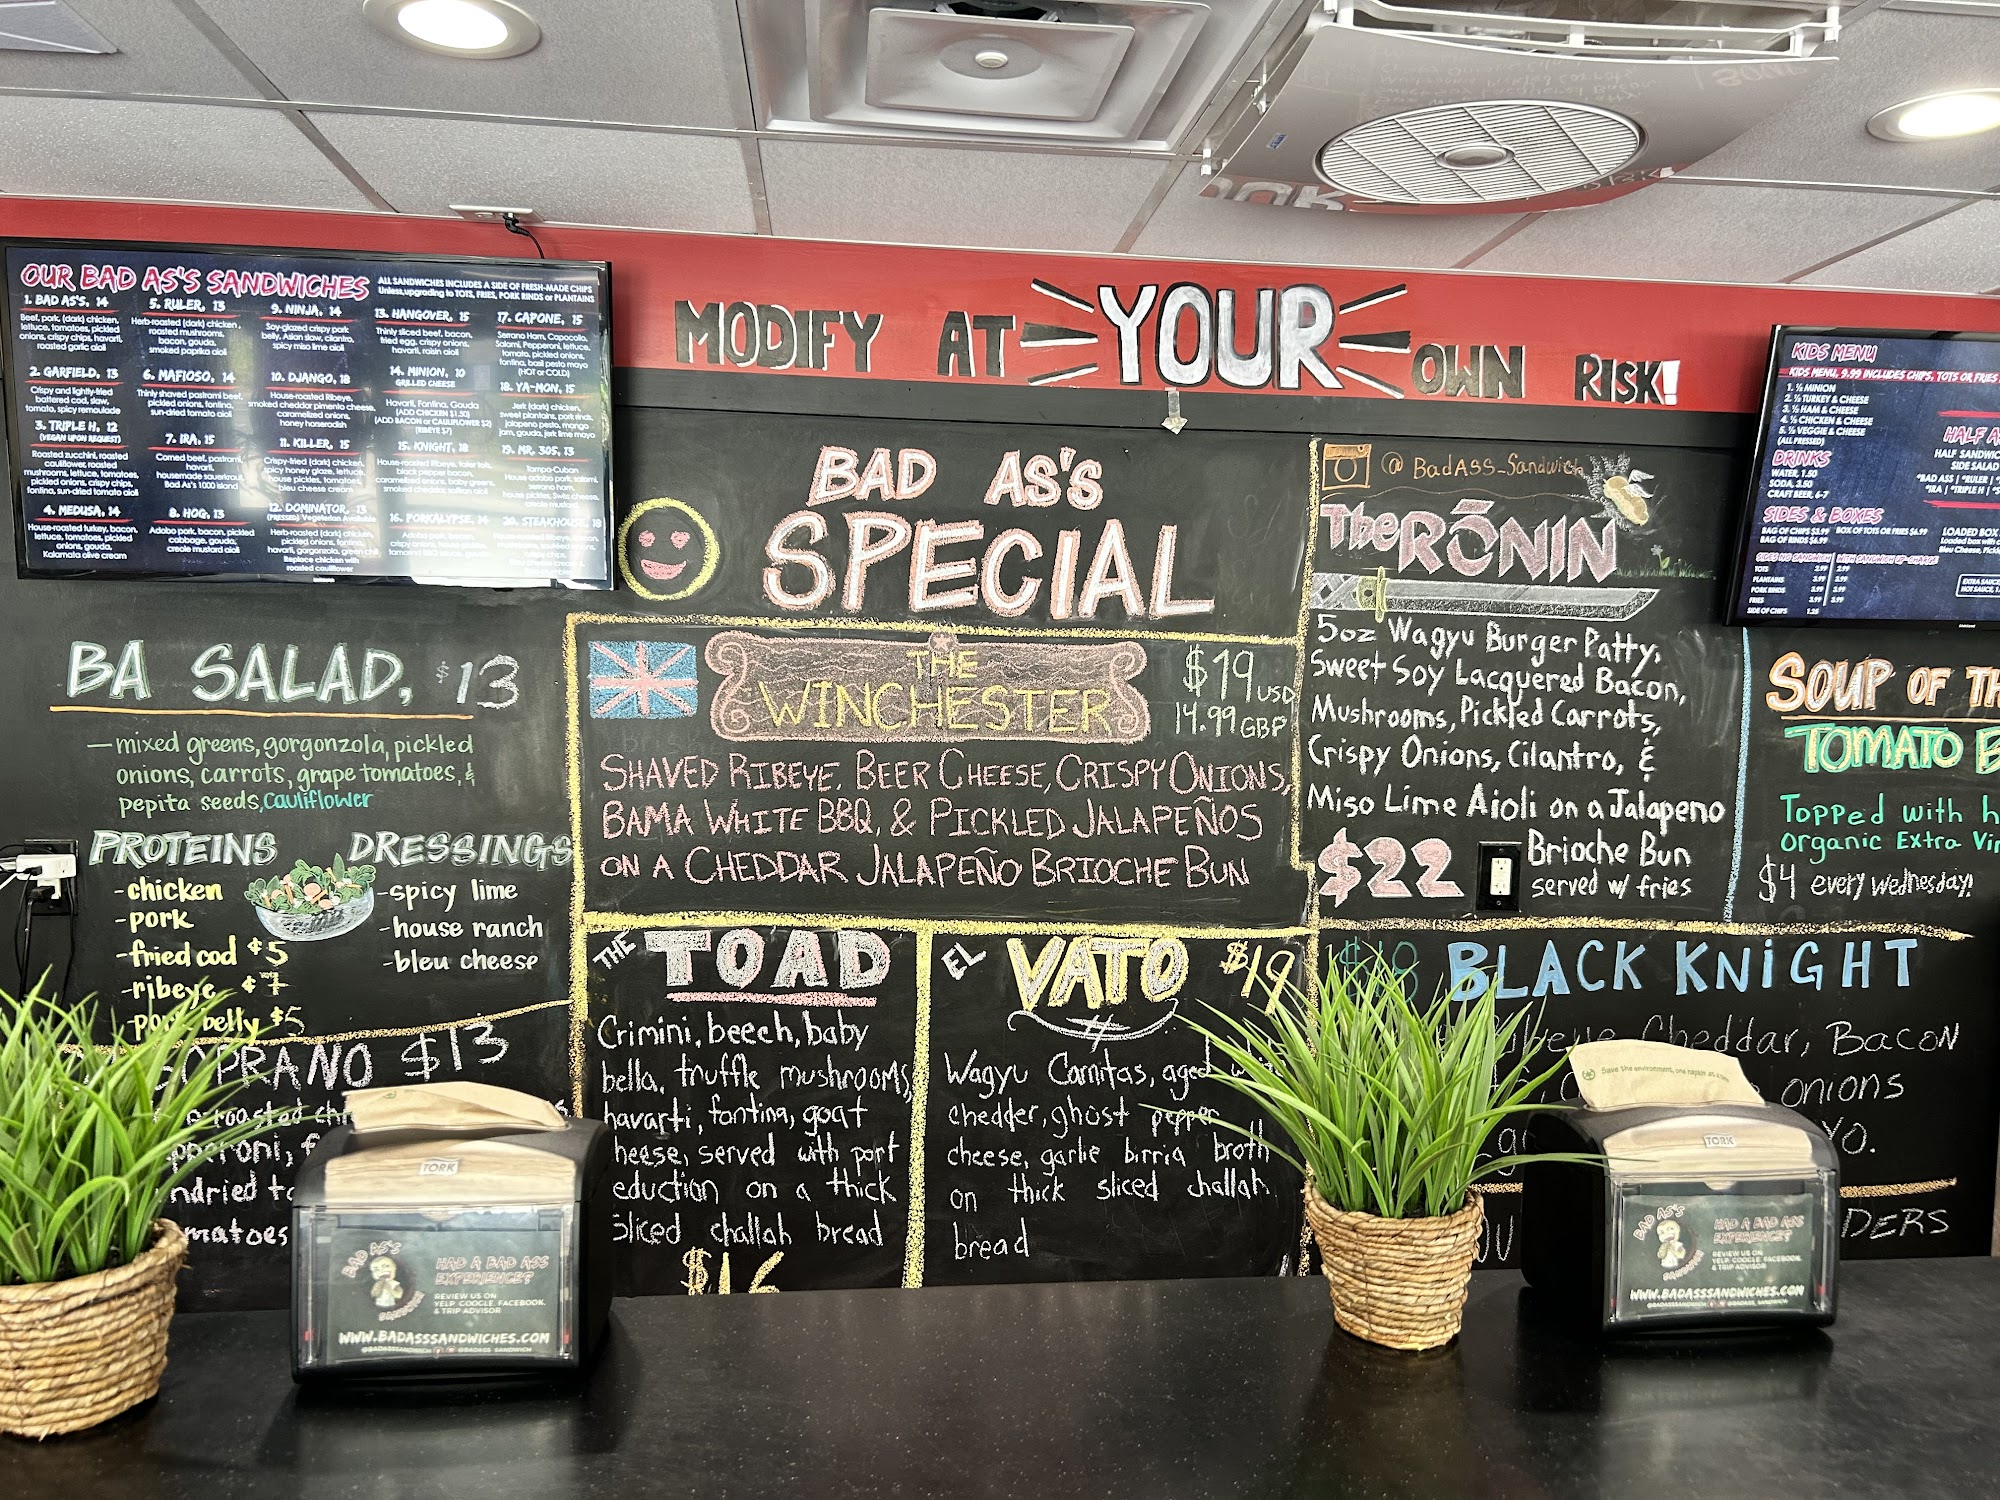 OUR BAD AS'S SANDWICHES
ALL SANDWICHES INCLUDES A SIDE OF FRESH-MADE CHIPS
Unless, upgrading to TOTS, FRIES, PORK RINDS or PLANTAINS
1. BAD AS'S, 14
Beef, pork, (dark) chicken,
lettuce, tomatoes, pickled
onions, crispy chips, havarti,
roasted garlic aioli
2. GARFIELD, 13
Crispy and lightly-fried
battered cod, slaw,
tomato, spicy remoulade
3. TRIPLE H, 12
(VEGAN UPON REQUEST)
Roasted zucchini, roasted
cauliflower, roasted
mushrooms, lettuce, tomatoes,
pickled onions, crispy chips,
fontina, sun-dried tomato aioli
4. MEDUSA, 14
House-roasted turkey, bacon,
lettuce, tomatoes, pickled
onions, gouda,
Kalamata olive cream
5. RULER, 13
Herb-roasted (dark) chicken,
roasted mushrooms,
bacon, gouda,
smoked paprika aioli
6. MAFIOSO, 14
Thinly shaved pastrami beef,
pickled onions, fontina,
sun-dried tomato aioli
7. IRA, 15
Corned beef, pastrami,
havarti,
housemade sauerkraut,
Bad As's 1000 island
8. HOG, 13
Adobo pork, bacon, pickled
cabbage, gouda,
creole mustard aioli
9. NINJA, 14
Soy-glazed crispy pork
belly, Asian slaw, cilantro,
spicy miso lime aioli
10. DJANGO, 18
House-roasted Ribeye,
smoked cheddar pimento cheese,
caramelized onions,
honey horseradish
11. KILLER, 15
Crispy-fried (dark) chicken,
spicy honey glaze, lettuce,
house pickles, tomatoes,
bleu cheese cream
12. DOMINATOR, 13
(PRESSED) Vegetarian Available
Herb-roasted (dark) chicken,
pickled onions, fontina,
havarti, gorgonzola, green chili
Replace chicken with
roasted cauliflower
13. HANGOVER, 15
Thinly sliced beef, bacon,
fried egg, crispy onions,
havarti, raisin aioli
14. MINION, 10
GRILLED CHEESE
Havarti, Fontina, Gouda
(ADD CHICKEN $1.50)
(ADD BACON or CAULIFLOWER $2)
(RIBEYE $7)
15. KNIGHT, 18
House-roasted Ribeye, tater tots,
black pepper bacon,
caramelized onions, baby greens,
smoked cheddar, saffron aioli
16. PORKALYPSE, 14
Adobo pork, bacon,
17. CAPONE, 15
Serrano Ham, Capocollo,
Salami, Pepperoni, lettuce,
tomato, pickled onions,
fontina, basil pesto mayo
(HOT or COLD)
18. YA-MON, 15
Jerk (dark) chicken,
sweet plantains, pork rinds,
jalapeno pesto, mango
jam, gouda, jerk lime mayo
19. MR. 305, 13
Tampa-Cuban
House adobo pork, salami,
serrano ham,
house pickles, Swiss cheese,
creole mustard
20. STEAKHOUSE, 18
MODIFY AT YOUR OWN RISK!
KIDS MENU
KIDS MENU, 9.99 INCLUDES CHIPS, TOTS OR FRIES
1. ½ MINION
2. ½ TURKEY & CHEESE
3. ½ HAM & CHEESE
4. ½ CHICKEN & CHEESE
5. ½ VEGGIE & CHEESE
(ALL PRESSED)
DRINKS
WATER, 1.50
SODA, 3.50
CRAFT BEER, 6-7
HALF
HALF SANDWIC
SIDE SALAD
*BAD ASS | *RULER |
*IRA | *TRIPLE H | *S
SIDES & BOXES
BAG OF CHIPS $3.99
BOX OF TOTS OR FRIES $6.99
BAG OF RINDS $4.99
LOADED BOX
Loaded box with
Bleu Cheese, Pickl
SIDES NO SANDWICH | WITH SANDWICH UP-CHARGE
TOTS 2.99 2.99
PLANTAINS 3.99 3.99
PORK RINDS 3.99 3.99
FRIES 3.99 3.99
SIDE OF CHIPS 1.25
EXTRA SAUCE
HOT SAUCE, 1.
BA SALAD, $13
— mixed greens, gorgonzola, pickled
onions, carrots, grape tomatoes, &
pepita seeds, cauliflower
PROTEINS
- chicken
- pork
- fried cod $5
- ribeye $7
- pork belly $5
DRESSINGS
- spicy lime
- house ranch
- bleu cheese
OPRANO $13
roasted
pperoni,
ndried
matoes
BAD AS'S
SPECIAL
THE
WINCHESTER
$19 USD
14.99 GBP
SHAVED RIBEYE, BEER CHEESE, CRISPY ONIONS,
BAMA WHITE BBQ, & PICKLED JALAPEÑOS
ON A CHEDDAR JALAPEÑO BRIOCHE BUN
THE TOAD
Crimini, beech, baby
bella, truffle mushrooms,
havarti, fontina, goat
heese, served with port
eduction on a thick
sliced challah bread
$16
EL VATO $19
Wagyu Carnitas, aged white
chedder, ghost pepper
cheese, garlic birria broth
on thick sliced challah
bread
@BadASS_Sandwich
The RŌNIN
5oz Wagyu Burger Patty,
Sweet Soy Lacquered Bacon,
Mushrooms, Pickled Carrots,
Crispy Onions, Cilantro, &
Miso Lime Aioli on a Jalapeno
Brioche Bun
served w/ fries
$22
SOUP OF TH
TOMATO B
Topped with h
Organic Extra Vir
$4 every wednesday!
$18 BLACK KNIGHT
Ribeye, Cheddar, Bacon
onions
YO.
DERS
Save the environment, one napkin at a time
TORK
BAD AS'S
SANDWICH
HAD A BAD ASS
EXPERIENCE?
REVIEW US ON
YELP, GOOGLE, FACEBOOK,
& TRIP ADVISOR
WWW.BADASSSANDWICHES.COM
@BADASSSANDWICH @BADASS_SANDWICH
TORK
BAD AS'S
SANDWICH
HAD A BAD ASS
EXPERIENCE?
REVIEW US ON
YELP, GOOGLE, FACEBOOK,
& TRIP ADVISOR
WWW.BADASSSANDWICHES.COM
@BADASSSANDWICH @BADASS_SANDWICH